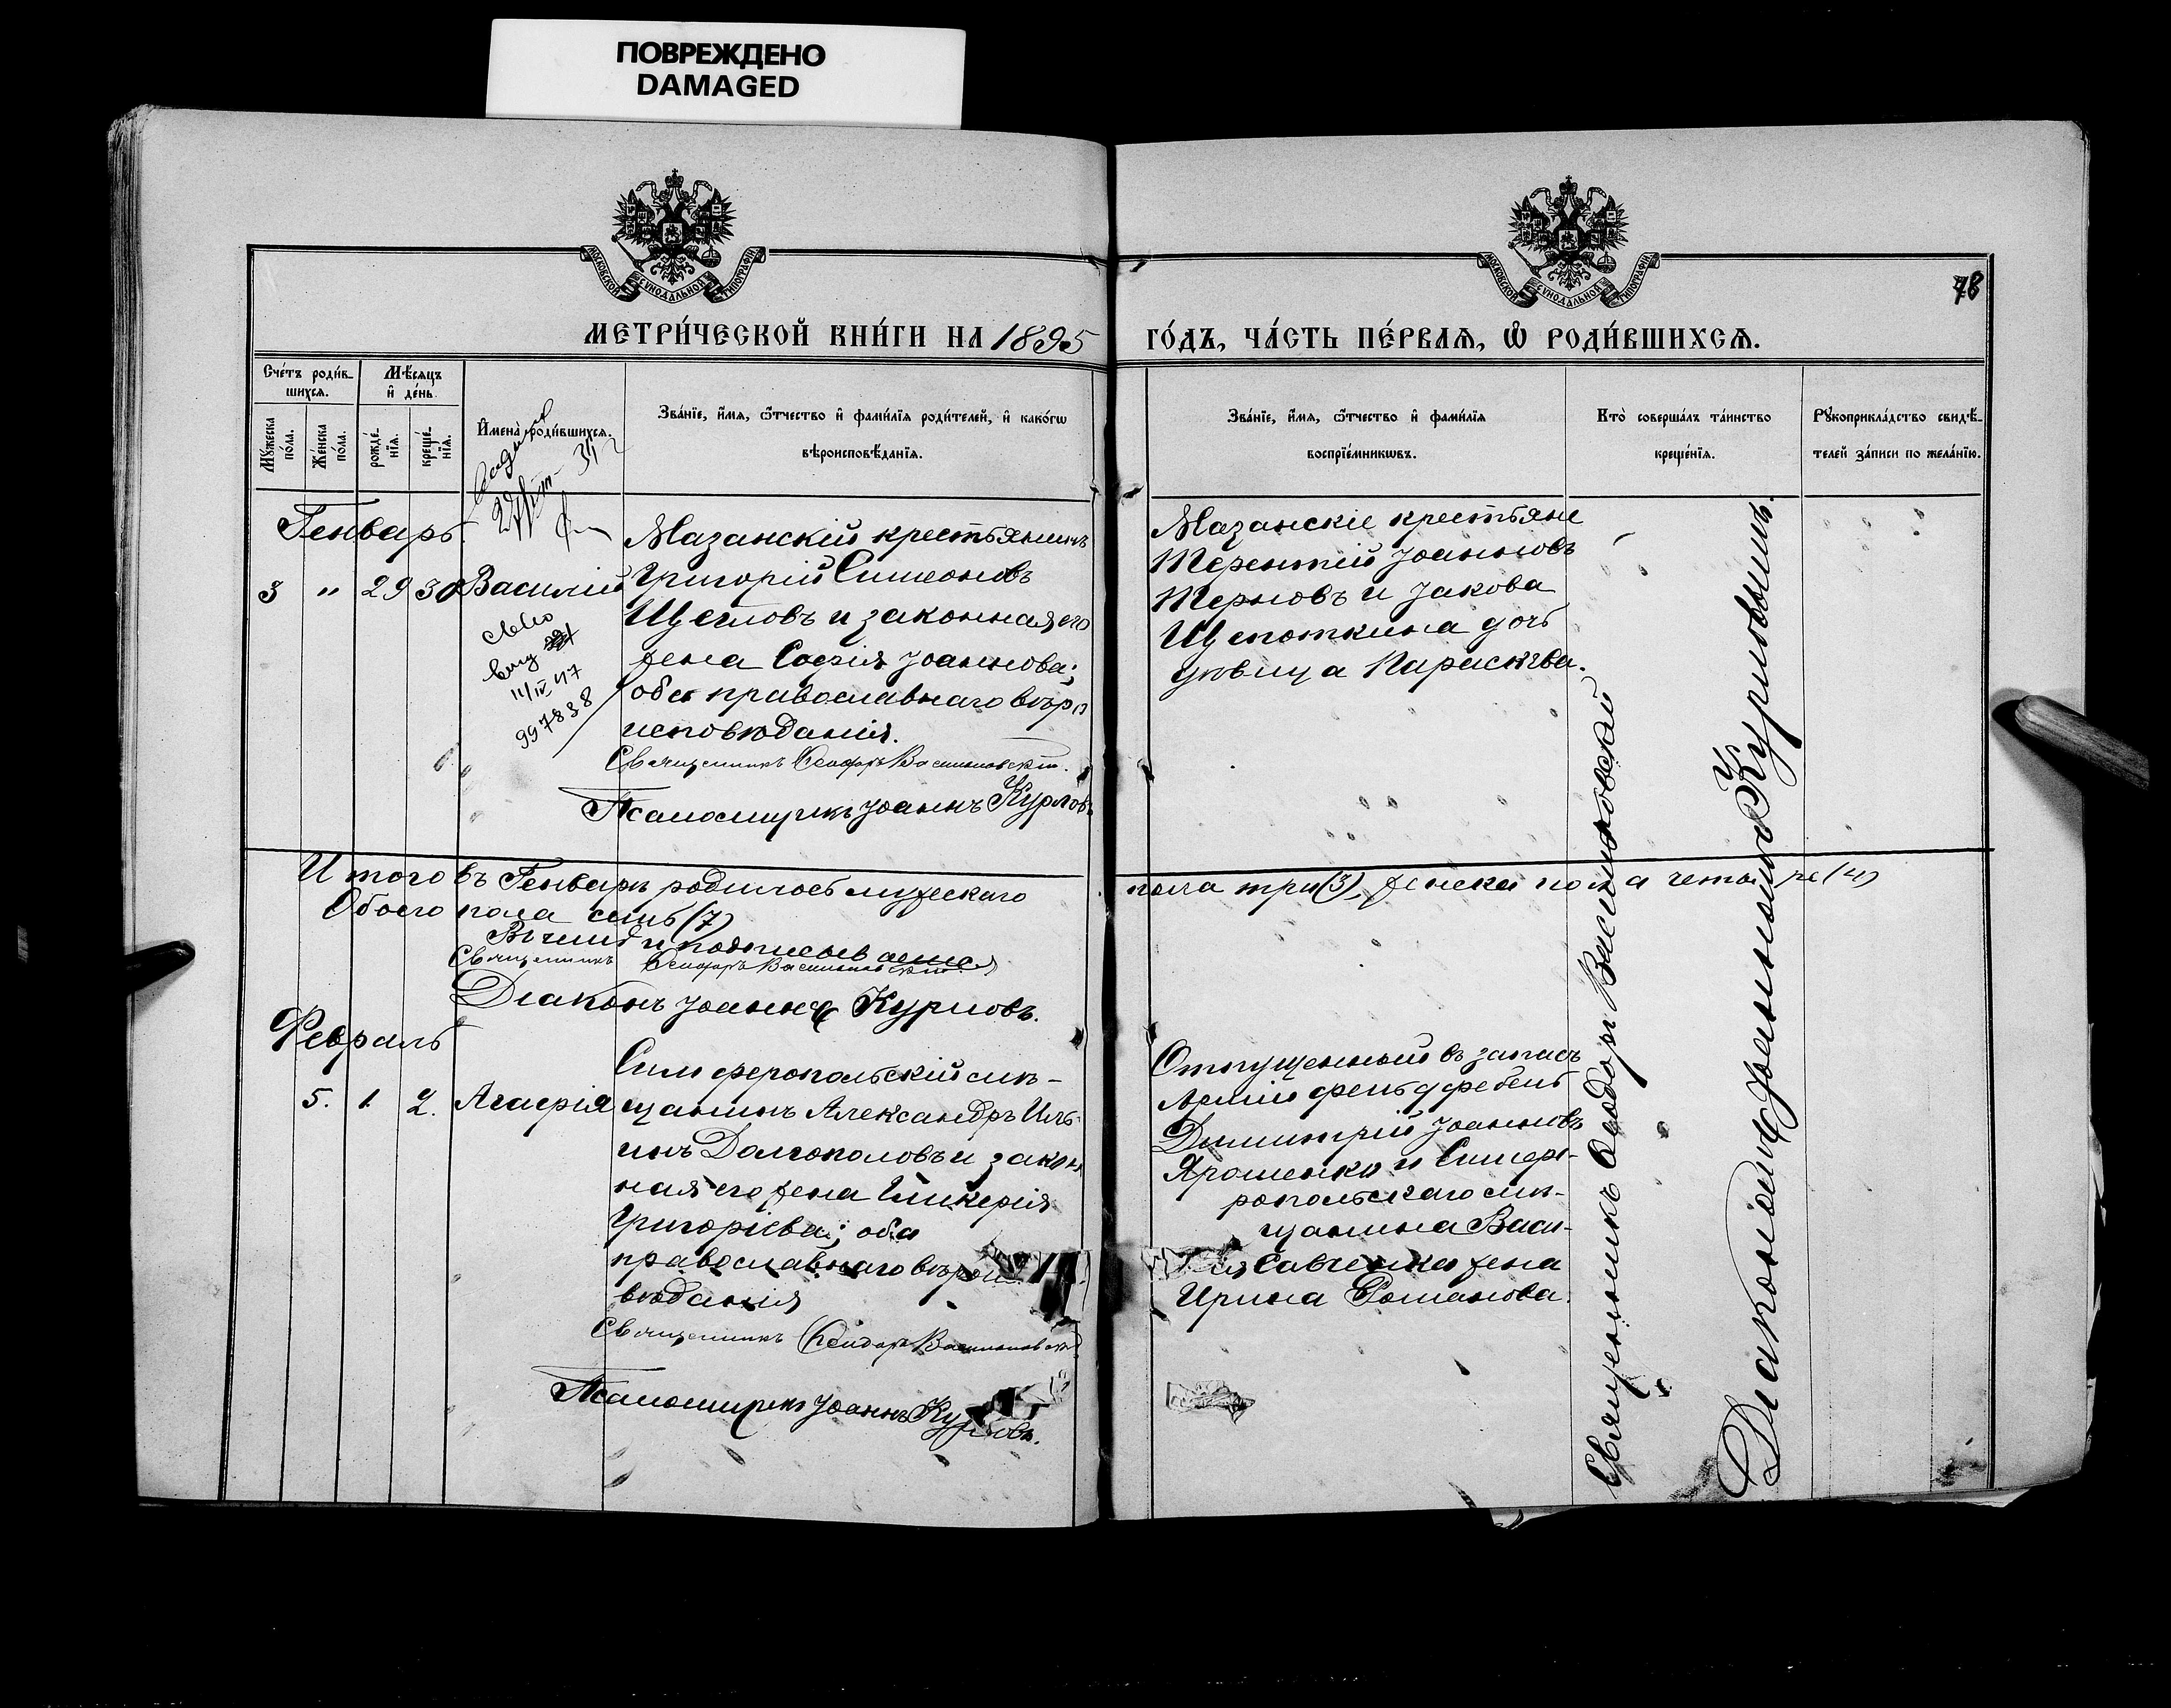 ПОВРЕЖДЕНО
DAMAGED
МОСКОВСКОЙ СѴНОДАЛЬНОЙ ТИПОГРАФІИ
МОСКОВСКОЙ СѴНОДАЛЬНОЙ ТИПОГРАФІИ
78
МЕТРИ́ЧЕСКОЙ КНИ́ГИ НА 1895
ГО́ДЪ, ЧА́СТЬ ПЕ́РВАѦ, Ѽ РОДИ́ВШИХСѦ.
Сче́тъ роди́в-
шихсѧ.
Мѣ́сѧцъ
и҆ де́нь.
Мꙋ́жеска
по́ла.
Же́нска
по́ла.
рожде́-
нїѧ.
креще́-
нїѧ.
И҆мена̀ роди́вшихсѧ.
Зва́нїе, и҆́мѧ, ѻ҆́тчество и҆ фами́лїѧ роди́телей, и҆ како́гѡ
вѣроисповѣ́данїѧ.
Зва́нїе, и҆́мѧ, ѻ҆́тчество и҆ фами́лїѧ
воспрїе́мникѡвъ.
Кто̀ соверша́лъ та́инство
креще́нїѧ.
Рꙋкоприкла́дство свидѣ́-
телей за́писи по жела́нїю.
Генварь.
3 " 29 30 Василій
св-во
выд
11/IV 47
997838
Мазанскій крестьянинъ
Григорій Симеоновъ
Щегловъ и законная его
жена Софія Іоаннова;
оба православнаго вѣро
исповѣданія.
Священникъ Ѳеодоръ Васильковскій.
Псаломщикъ Іоаннъ Курловъ
Мазанскіе крестьяне
Терентій Іоанновъ
Терновъ и Іакова
Щепоткина дочь
дѣвица Параскева.
Итого въ Генварѣ родилось мужескаго
пола три (3), женска пола четыре (4)
Обоего пола семь (7)
Въ чемъ и подписываемся
Священникъ Ѳеодоръ Васильковскій
Діаконъ Іоаннъ Курловъ.
Февраль
5. 1. 2. Агафія
Симферопольскій мѣ-
щанинъ Александръ Иль-
инъ Долгополовъ и закон
ная его жена Гликерія
Григоріева; оба
православнаго вѣроис
вѣданія
Священникъ Ѳеодоръ Васильковскій
Псаломщикъ Іоаннъ Курловъ.
Отпущенный въ запасъ
Арміи фельдфебель
Димитрій Іоанновъ
Ярошенко и Симфе-
ропольскаго мѣ-
щанина Васи-
лія Савченка жена
Ирина Романова.
Священникъ Ѳеодоръ Васильковскій
Діакономъ Іоанномъ Курловымъ.